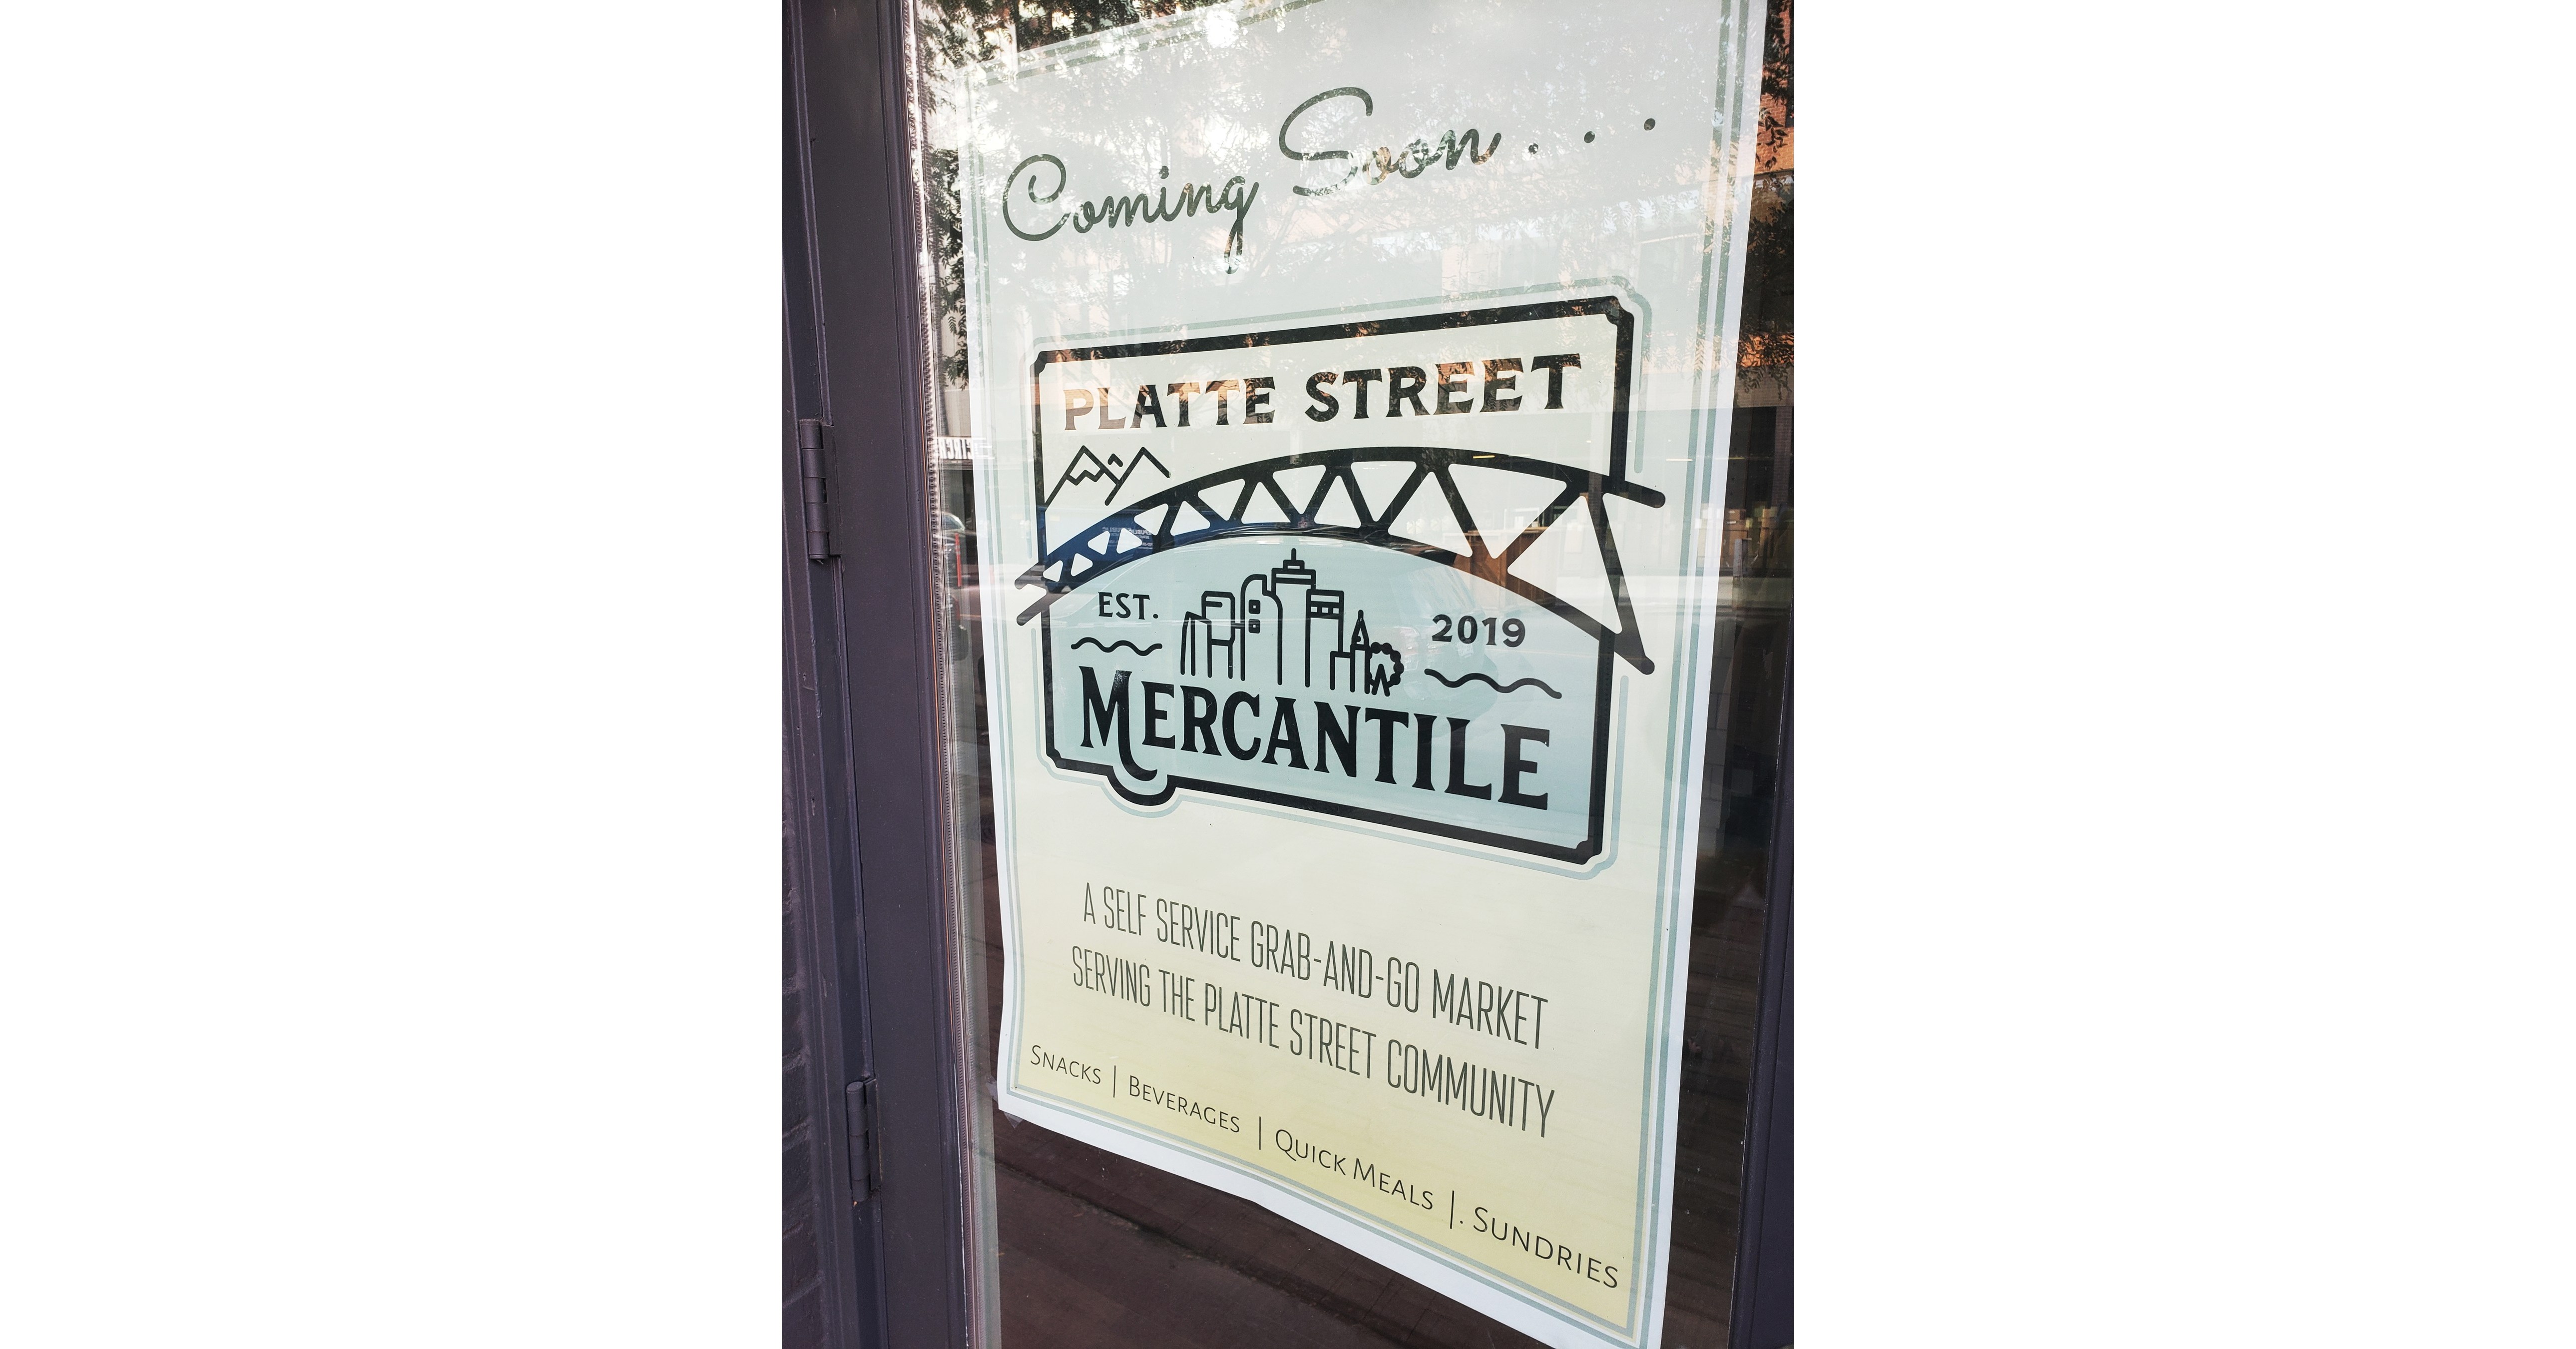 Coming Soon . . .
PLATTE STREET
EST. 2019
MERCANTILE
A SELF SERVICE GRAB-AND-GO MARKET
SERVING THE PLATTE STREET COMMUNITY
SNACKS | BEVERAGES | QUICK MEALS |. SUNDRIES